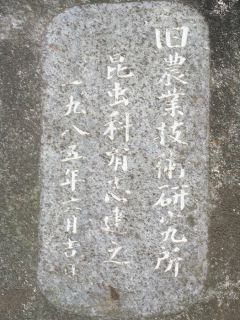 旧農業技術研究所
昆虫科有志建之
一九八五年 月吉日